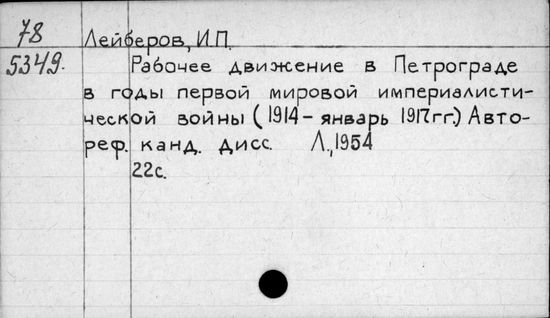 78 Лейберов, И.П.
5349. Рабочее движение в Петрограде
в годы первой мировой империалисти-
ческой войны (1914 – январь 1917 гг.) Авто-
реф. канд. дисс. Л., 1954
22с.